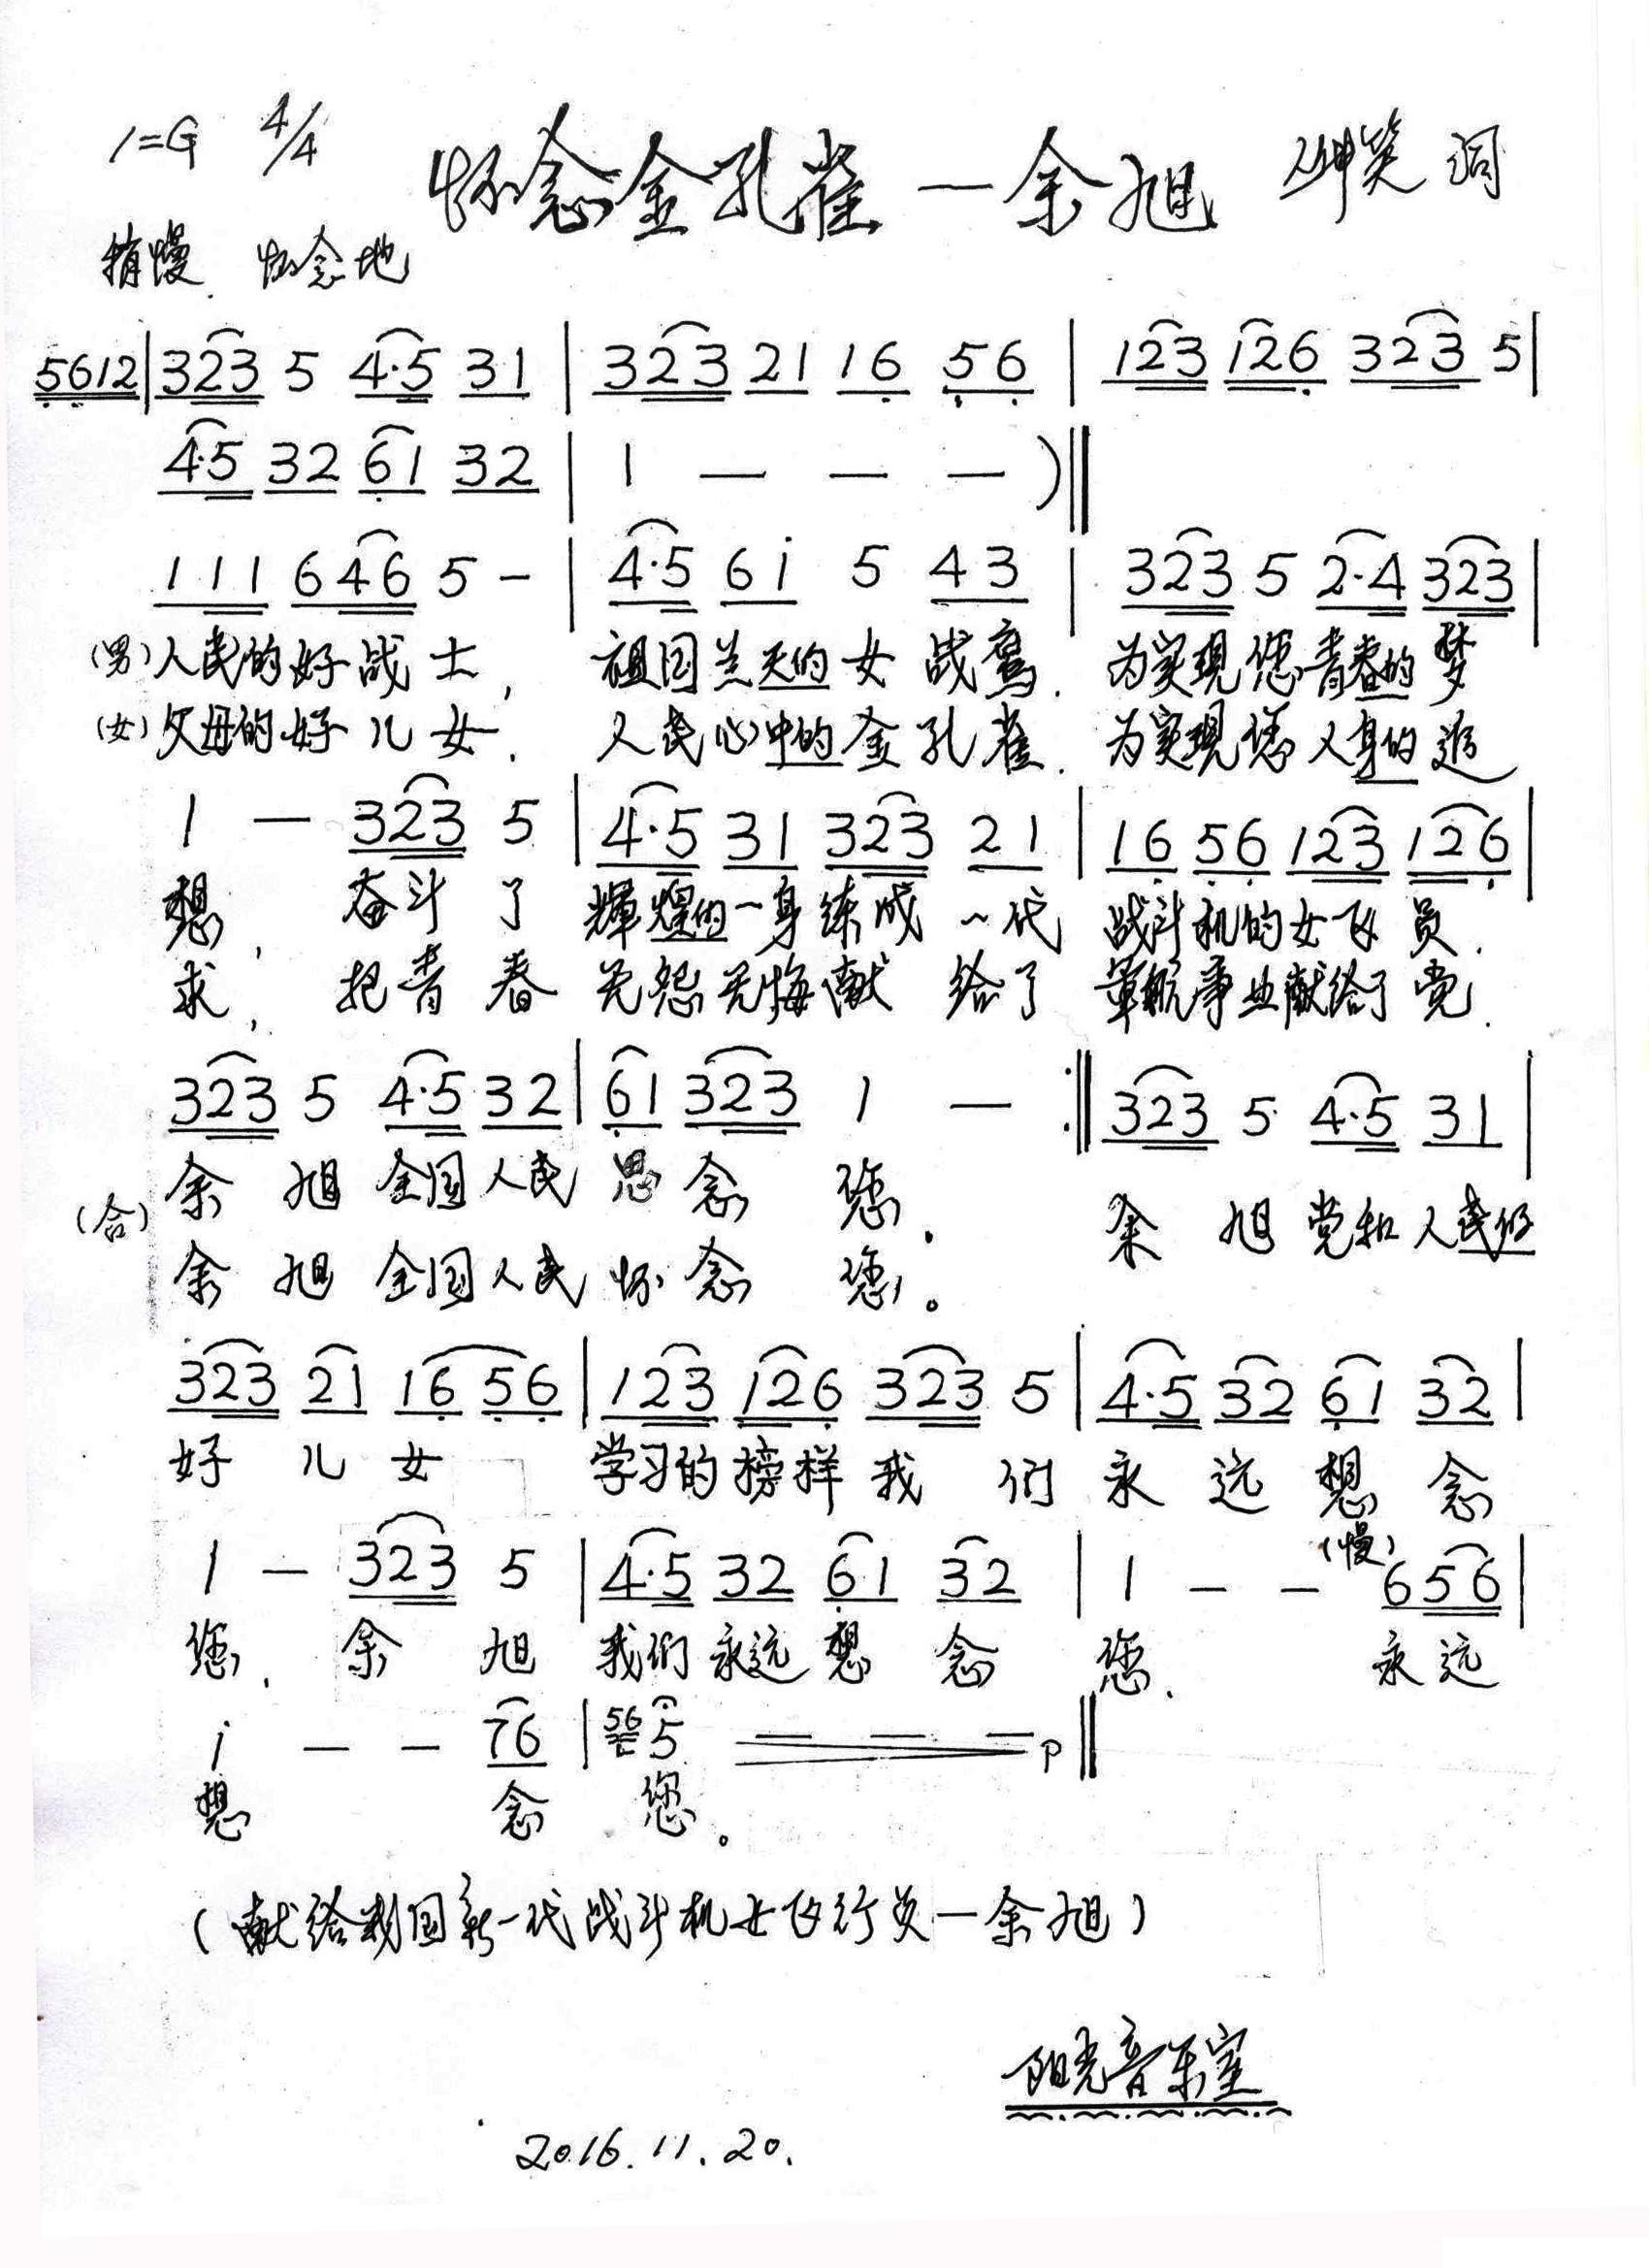 1=G 4/4
怀念金孔雀一余旭 笑 词
稍慢 怀念地
5612|323 5 4·5 31|323 21 16 56|123 126 323 5|
4·5 32 61 32|1 — — — )‖
111 646 5 —|4·5 61 5 43|323 5 2·4 323|
(男)人民的好战士, 祖国兰天的女战鹰. 为实现您青春的梦
(女)父母的好儿女. 人民心中的金孔雀. 为实现您人身的追
1 — 323 5|4·5 31 323 21|16 56 123 126|
想, 奋斗了 辉煌的一身练成一代 战斗机的女飞员.
求, 把青春 无怨无悔献给了 军航事业献给了党.
323 5 4·5 32|61 323 1 — :‖323 5 4·5 31|
(合)余旭全国人民思念您. 余旭党和人民的
余旭全国人民怀念您。
323 21 16 56|123 126 323 5|4·5 32 61 32|
好儿女 学习的榜样我们永远想念
(慢)
1 — 323 5|4·5 32 61 32|1 — — 656|
您. 余旭 我们永远想念 您. 永远
1 — — 76|56 5 — — — p‖
想 念 您。
(献给我国新一代战斗机女飞行员一余旭)
阳光音乐室
2016.11.20.